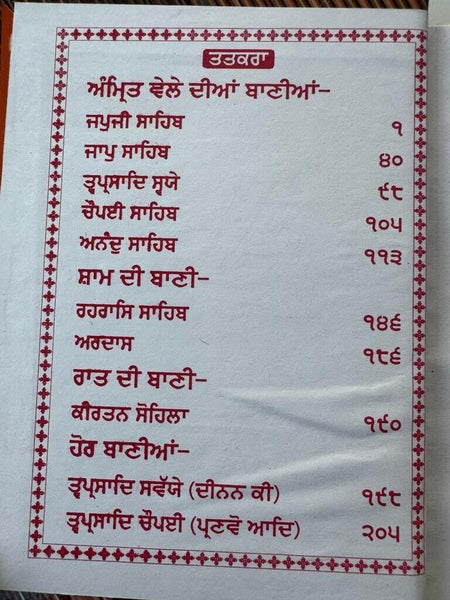 ਤਤਕਰਾ
ਅੰਮ੍ਰਿਤ ਵੇਲੇ ਦੀਆਂ ਬਾਣੀਆਂ–
ਜਪੁਜੀ ਸਾਹਿਬ ੧
ਜਾਪੁ ਸਾਹਿਬ ੪੦
ਤ੍ਵਪ੍ਰਸਾਦਿ ਸ੍ਵਯੇ ੯੮
ਚੌਪਈ ਸਾਹਿਬ ੧੦੫
ਅਨੰਦੁ ਸਾਹਿਬ ੧੧੩
ਸ਼ਾਮ ਦੀ ਬਾਣੀ–
ਰਹਰਾਸਿ ਸਾਹਿਬ ੧੪੬
ਅਰਦਾਸ ੧੮੬
ਰਾਤ ਦੀ ਬਾਣੀ–
ਕੀਰਤਨ ਸੋਹਿਲਾ ੧੯੦
ਹੋਰ ਬਾਣੀਆਂ–
ਤ੍ਵਪ੍ਰਸਾਦਿ ਸਵੱਯੇ (ਦੀਨਨ ਕੀ) ੧੯੮
ਤ੍ਵਪ੍ਰਸਾਦਿ ਚੌਪਈ (ਪ੍ਰਣਵੋ ਆਦਿ) ੨੦੫